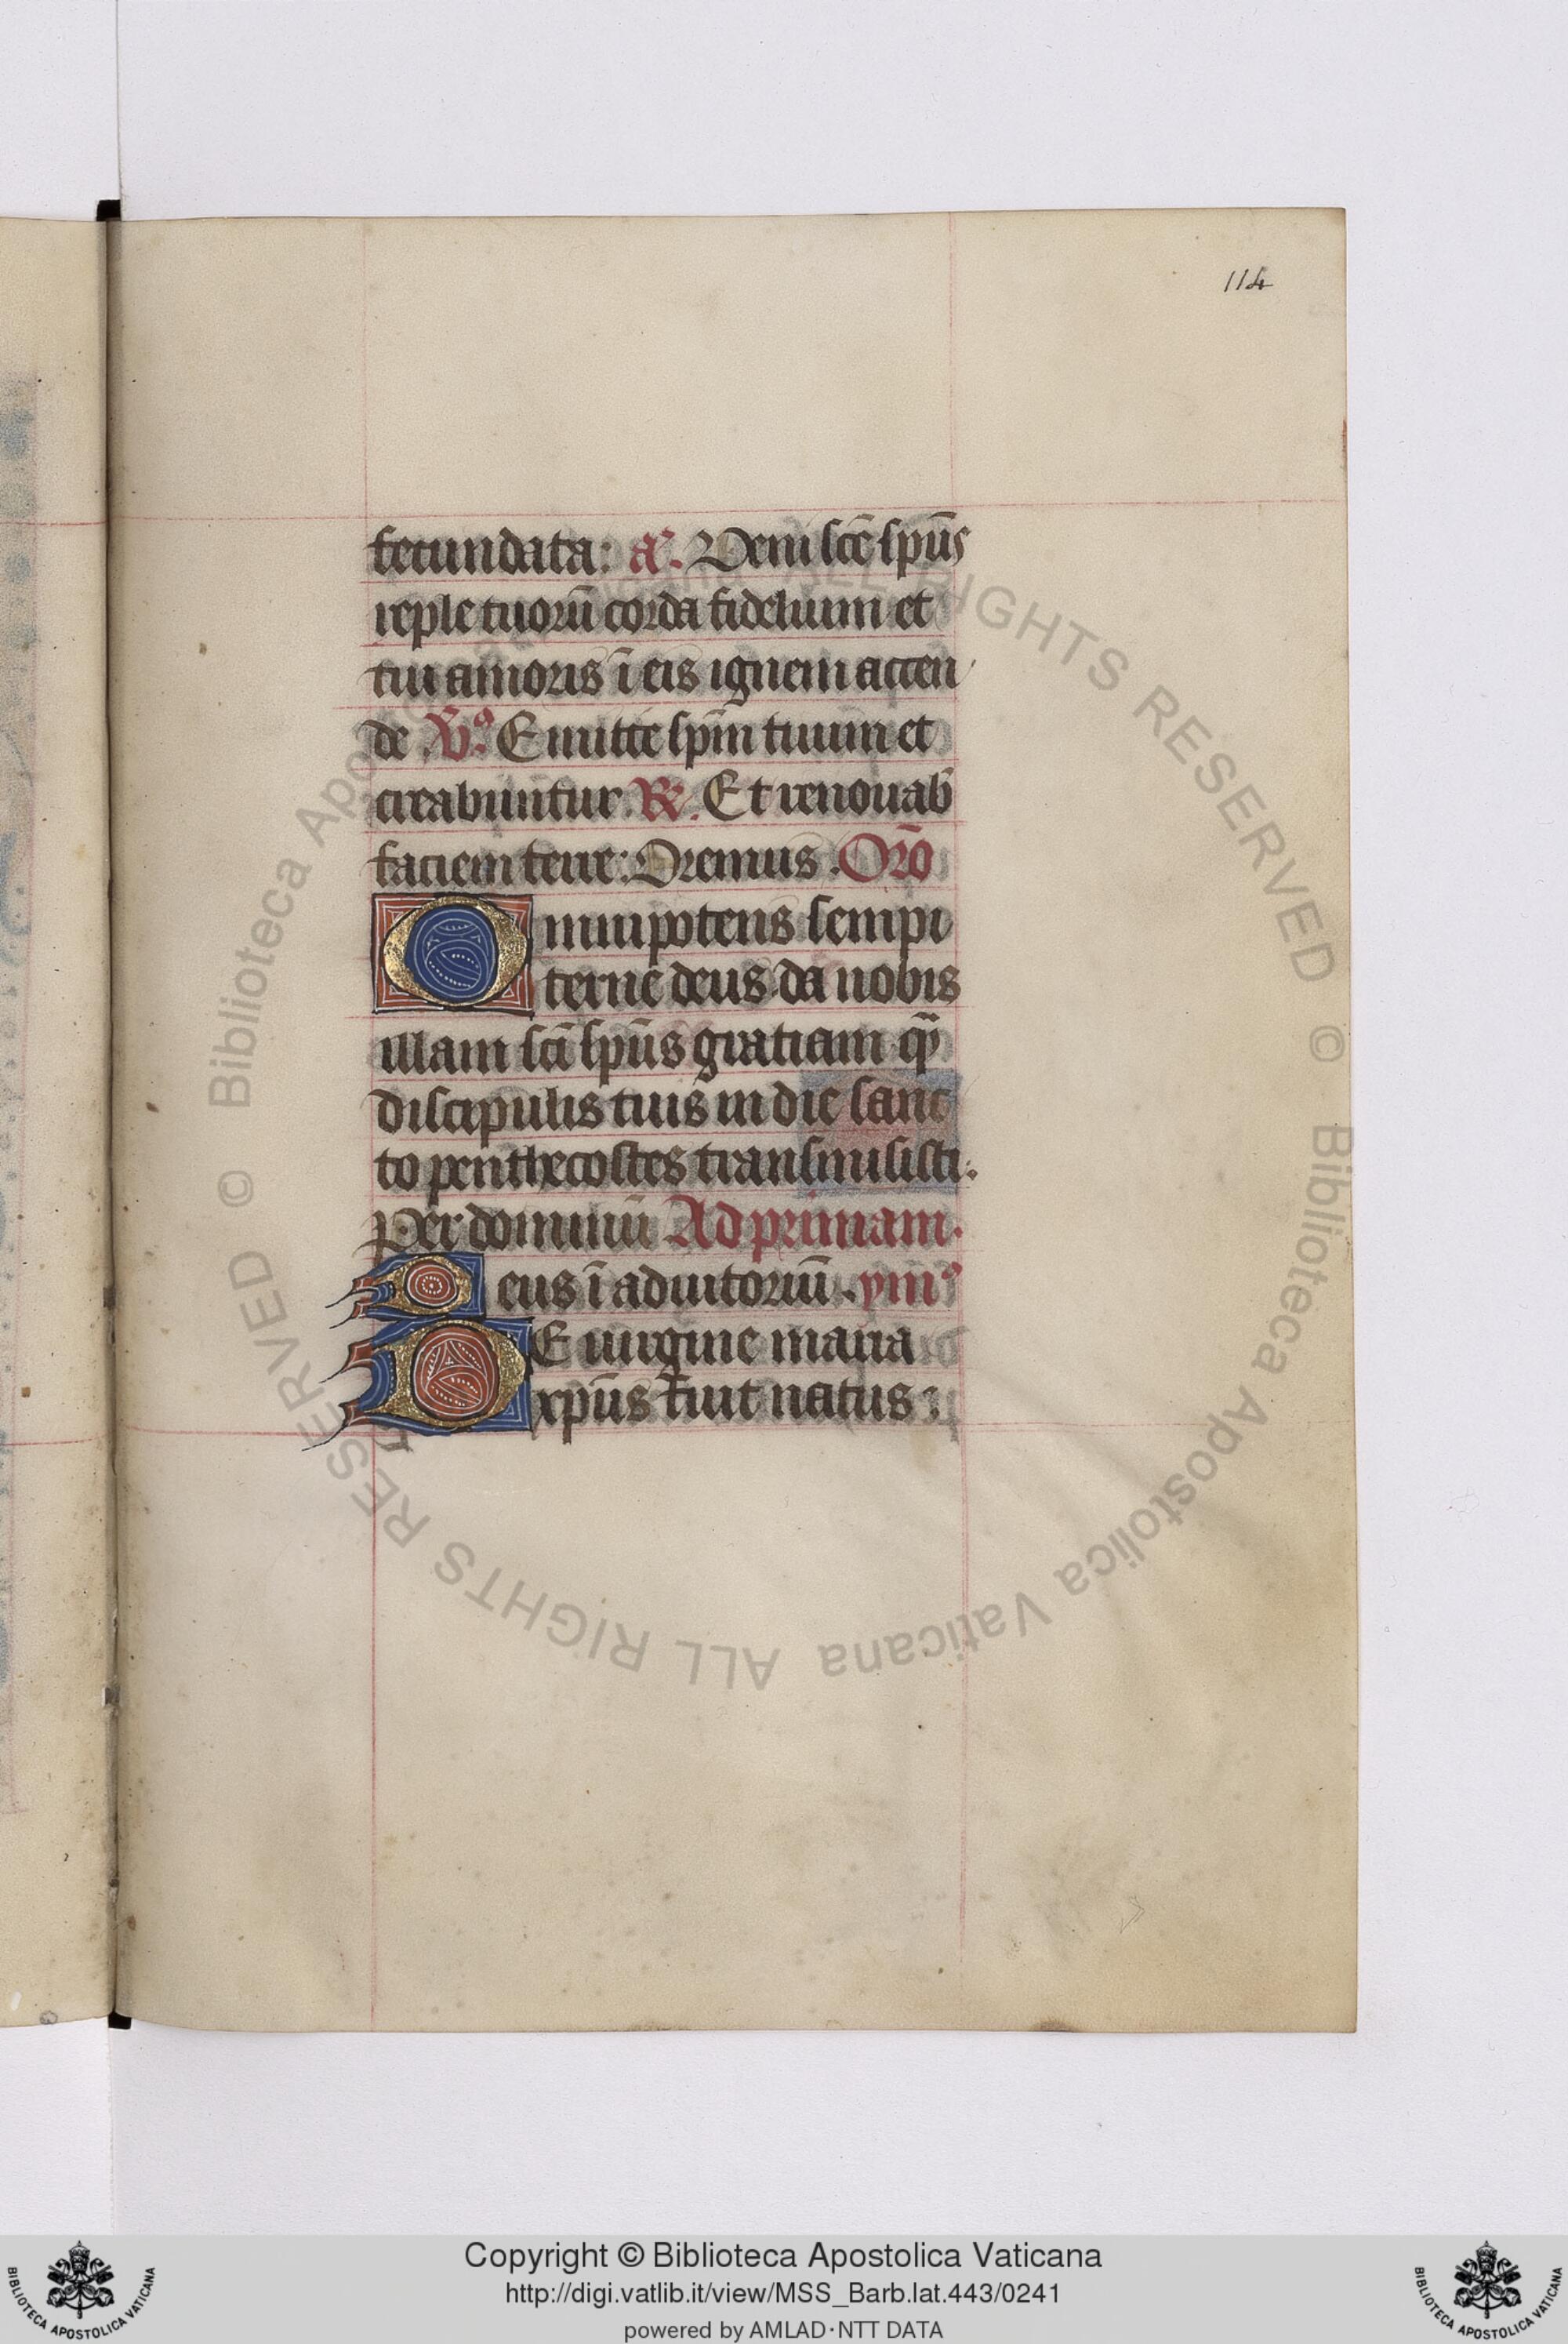 114
fecundata: aͣ. Veni sc̄e sp̄us
reple tuorū corda fidelium et
tui amoris ī eis ignem accen
de. V̄º. Emitte sp̄m tuum et
creabuntur. R̸. Et renouab̄
faciem terre: Oremus. Oro̅
Omnipotens sempi
terne deus da nobis
illam sc̄i sp̄us gratiam q̄
discipulis tuis in die sanc
to penthecostes transmisisti:
Per dominū Ad primam.
Deus ī adiutoriū. ymꝰ
DE uirgine maria
xp̄us fuit natus:
© Biblioteca Apostolica Vaticana ALL RIGHTS RESERVED © Biblioteca Apostolica Vaticana ALL RIGHTS RESERVED
Copyright © Biblioteca Apostolica Vaticana
http://digi.vatlib.it/view/MSS_Barb.lat.443/0241
powered by AMLAD·NTT DATA
BIBLIOTECA APOSTOLICA VATICANA
BIBLIOTECA APOSTOLICA VATICANA